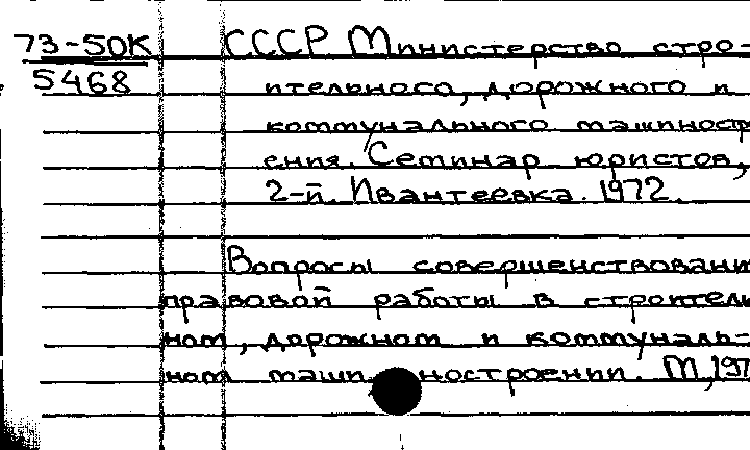 73-50К СССР Министерство стро-
5468 ительного, дорожного и
коммунального машиностр
ения. Семинар юристов,
2-й. Ивантеевка. 1972.
Вопросы совершенствовани
правовой работы в строитель
ном, дорожном и коммуналь-
ном машиностроении. М, 197